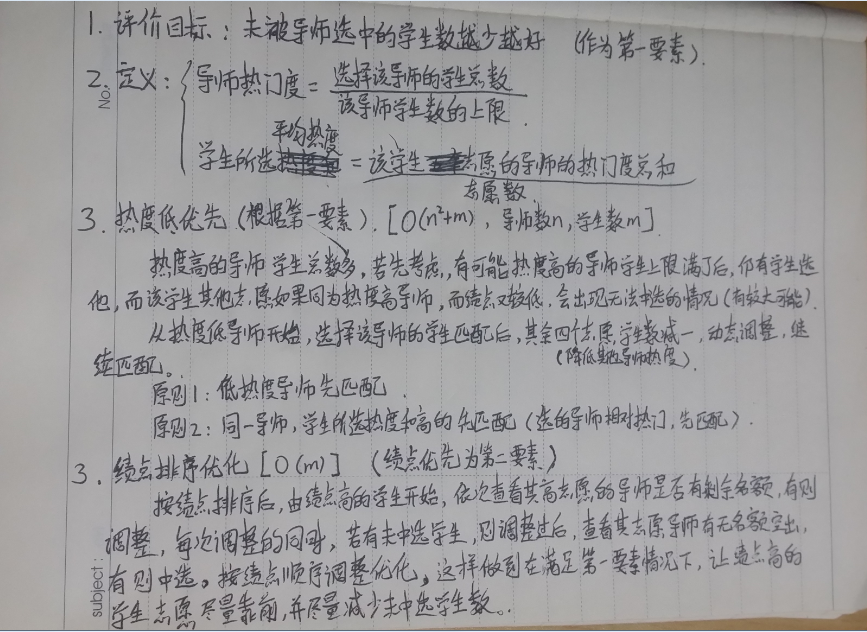 1. 评价目标：未被导师选中的学生数越少越好 （作为第一要素）.
2. 定义：{ 导师热门度 = 选择该导师的学生总数
该导师学生数的上限.
平均热度
学生所选 = 该学生志愿的导师的热门度总和
志愿数
3. 热度低优先（根据第一要素）. [O(n²+m)，导师数n，学生数m].
热度高的导师学生总数多，若先考虑，有可能热度高的导师学生上限满了后，仍有学生选
他，而该学生其他志愿如果同为热度高导师，而绩点又较低，会出现无法中选的情况（有较大可能）.
从热度低导师开始，选择该导师的学生匹配后，其余四个志愿，学生数减一，动态调整，继
（降低其他导师热度）.
续匹配。
原则1：低热度导师先匹配.
原则2：同一导师，学生所选热度和高的先匹配（选的导师相对热门，先匹配）.
3. 绩点排序优化 [O(m)] （绩点优先为第二要素）
按绩点排序后，由绩点高的学生开始，依次查看其高志愿的导师是否有剩余名额，有则
调整，每次调整的同时，若有未中选学生，则调整过后，查看其志愿导师有无名额空出，
有则中选。按绩点顺序调整优化。这样做到在满足第一要素情况下，让绩点高的
学生志愿尽量靠前，并尽量减少未中选学生数。
No.
subject: